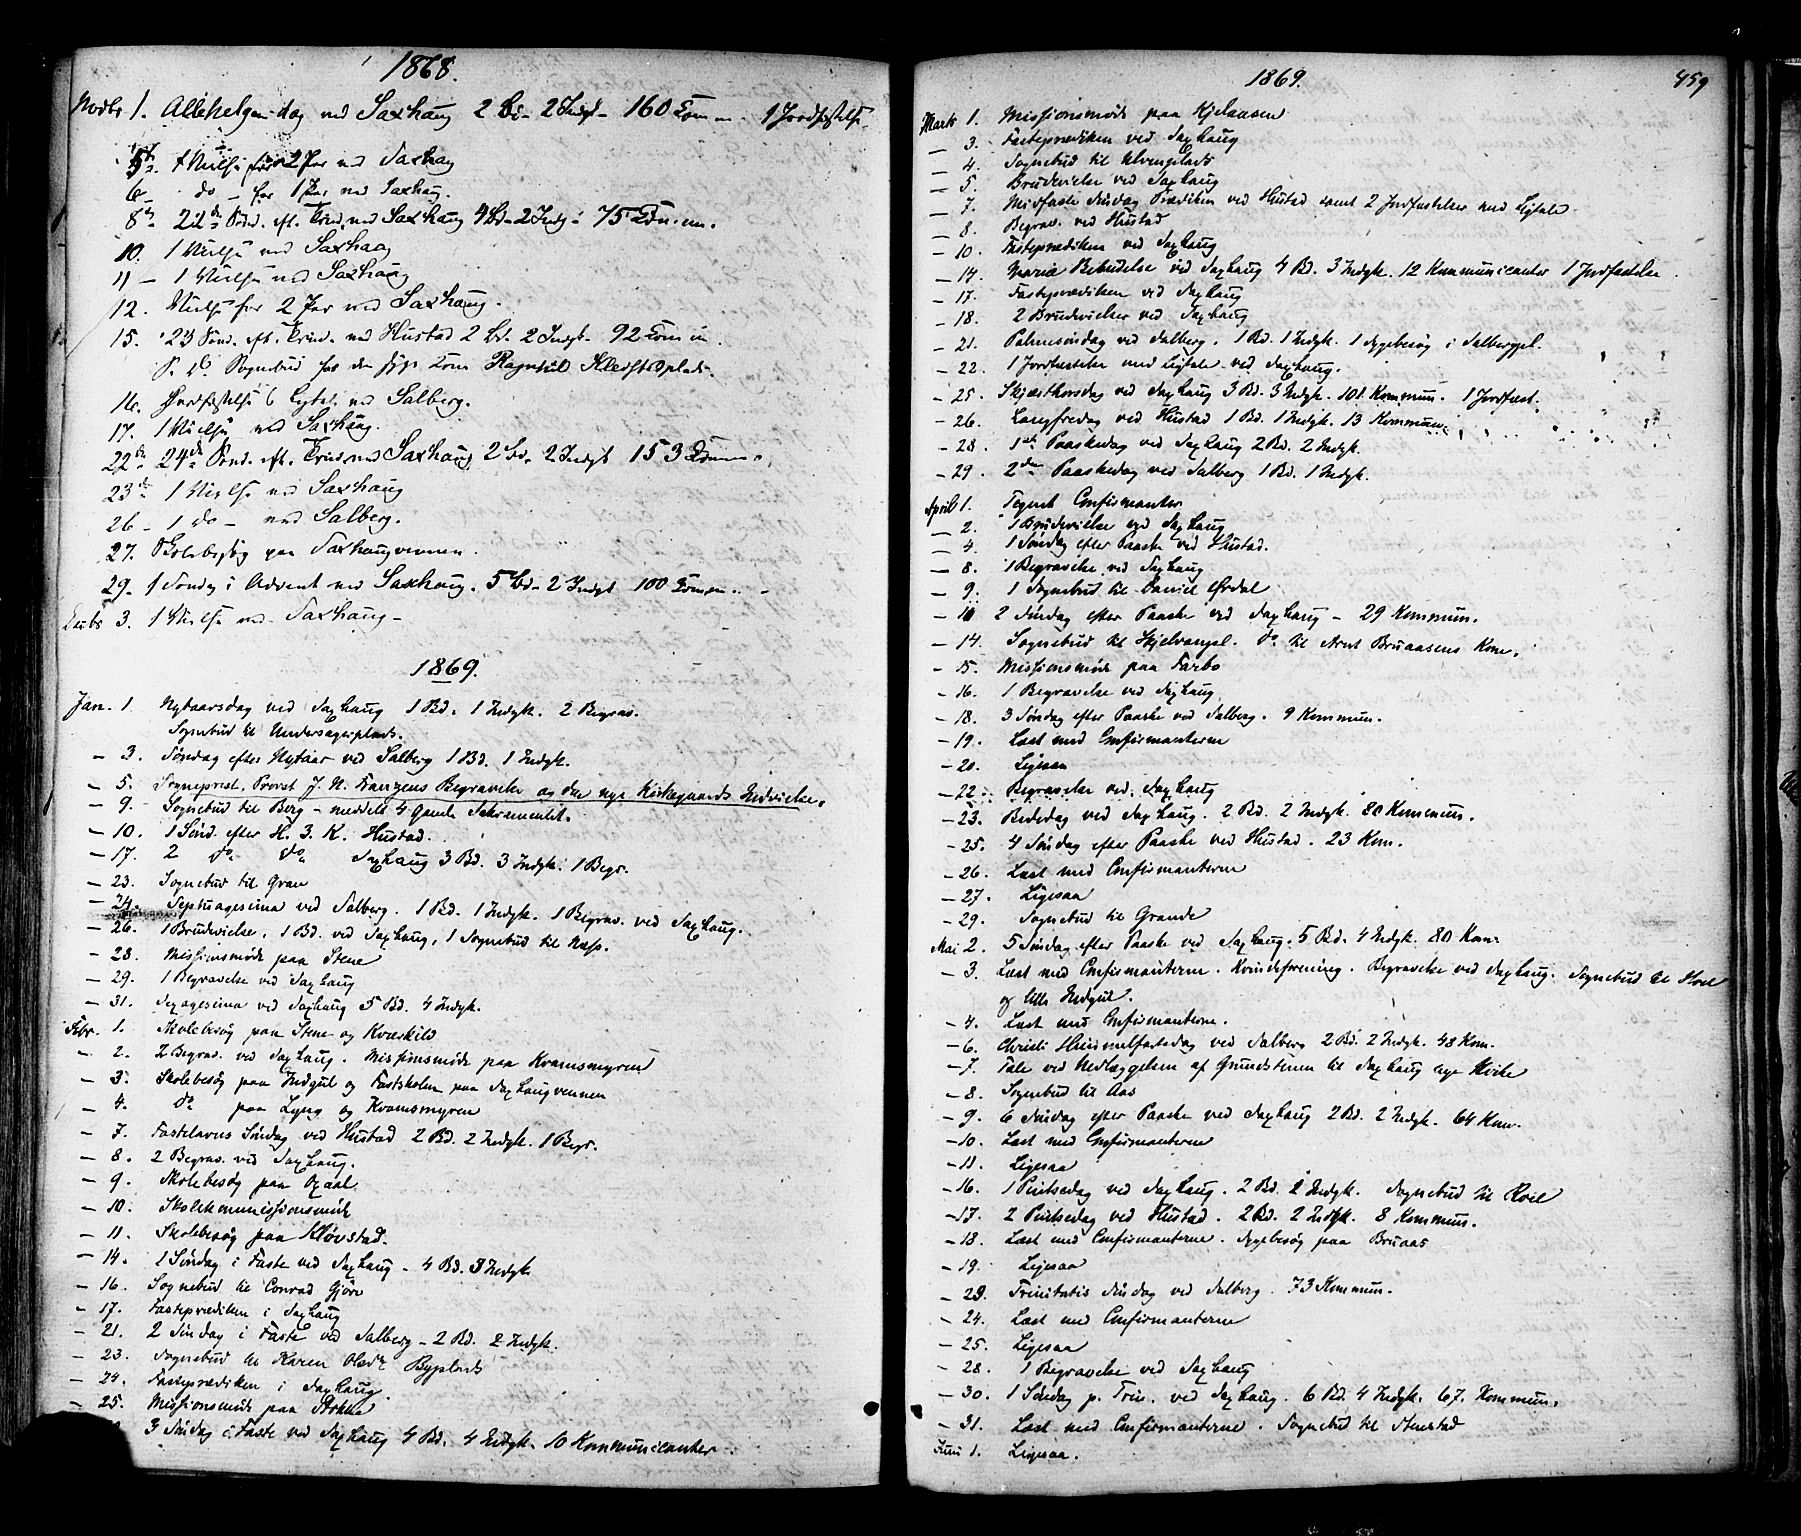 1868.
Novbr 1. Allehelgensdag ved Saxhaug 2 Bd. 2 Indgt. 160 Comm. 1 Jordfæstelse.
5te. 1 Vielse for 2 Par ved Saxhaug
6 - do - for 1 Par ved Saxhaug.
8de 22de Sønd. eft. Trin. ved Saxhaug 4 Bd. 2 Indg. 75 Comm.
10. 1 Vielse ved Saxhaug
11 - 1 Vielse ved Saxhaug
12. Vielse for 2 Par ved Saxhaug.
15. 23 Sønd. eft. Trind. ved Hustad 2 Bd. 2 Indgt. 92 Comm.
S. D. Sognebud hos den syge Kone Ragnhild
16. Jordfæstelse Salberg.
17. 1 Vielse ved Saxhaug.
22de 24de Sønd. eft. Trind. ved Saxhaug 2 Bd. 2 Indgt 153 Comm.
23de 1 Vielse ved Saxhaug
26 - 1 do - ved Salberg.
27. Skolebesøg paa Saxhaugvennen.
29. 1 Søndag i Advent ved Saxhaug. 5 Bd. 2 Indgt 100 Comm.
Decbr 3. 1 Vielse ved Saxhaug -
1869.
Jan. 1 Nytaarsdag ved Saxhaug 1 Bd. 1 Indgk. 2 Begrav.
Sognebud til Undersagerplads.
- 3. Søndag efter Nytaar ved Salberg 1 Bd. 1 Indgk.
- 5. Sogneprest, Provst J. N. Begravelse og den nye Kirkegaards Indvielse.
- 9. Sognebud til Berg - meddelt 4 Gamle Sakramentet.
- 10. 1 Sønd. efter H. 3. K. Hustad.
- 17. 2 do do Saxhaug 3 Bd. 3 Indgk. 1 Begr.
- 23. Sognebud til Gran
- 24. Septuagesima ved Salberg. 1 Bd. 1 Indgk. 1 Begrav. ved Saxhaug.
- 26. 1 Brudevielse, 1 Bd. ved Saxhaug, 1 Sognebud til Næss.
- 28. Missionsmøde paa Stene
- 29. 1 Begravelse ved Saxhaug
- 31. Sexagesima ved Saxhaug 5 Bd. 4 Indgk.
Febr. 1. Skolebesøg paa Stene og Kværkild
- 2. 2 Begrav. ved Saxhaug. Missionsmøde paa Kvamsmyren
- 3. Skolebesøg paa Indgul og Fastskolen paa Saxhaugvennen
- 4. do paa Lyng og Kvamsmyren
- 7. Fastelavns Søndag ved Hustad 2 Bd. 2 Indgk. 1 Begr.
- 8. 2 Begrav. ved Saxhaug.
- 9. Skolebesøg paa Oxaal
- 10. Skolekommissionsmøde
- 11. Skolebesøg paa Kløvstad.
- 14. 1 Søndag i Faste ved Saxhaug - 4 Bd. 3 Indgk
- 16. Sognebud til Conrad Gjøre
- 17. Fasteprædiken i Saxhaug
- 21. 2 Søndag i Faste ved Salberg - 2 Bd. 2 Indgk.
- 23. Sognebud til Karen Olsdr Byplads
- 24. Fasteprædiken i Saxhaug.
- 25. Missionsmøde paa Stokke
3 Søndag i Faste ved Saxhaug 4 Bd. 4 Indgk. 10 Kommunicanter.
1869.
459
Marts 1. Missionsmøde paa Kjelaasen
- 3. Fasteprædiken ved Saxhaug
- 4. Sognebud til Ulvenplads
- 5. Brudevielse ved Saxhaug
- 7. Midfaste Søndag Prædiken ved Hustad samt 2 Jordfæstelser med Ligtale
- 8. Begrav. ved Hustad
- 10. Fasteprædiken ved Saxhaug
- 14. Mariæ Bebudelse ved Saxhaug 4 Bd. 3 Indgk. 12 Kommunicanter 1 Jordfæstelse
- 17. Fasteprædiken ved Saxhaug
- 18. 2 Brudevielser ved Saxhaug
- 21. Palmesøndag ved Salberg. 1 Bd. 1 Indgk. 1 Sygebesøg i Salbergpl.
- 22. 1 Jordfæstelse med Ligtale ved Saxhaug.
- 25. Skjærthorsdag ved Saxhaug 3 Bd. 3 Indgk. 101 Kommun. 1 Jordfæst.
- 26. Langfredag ved Hustad 1 Bd. 1 Indgk. 13 Kommun.
- 28. 1ste Paaskedag ved Saxhaug 2 Bd. 2 Indgk.
- 29. 2den Paaskedag ved Salberg 1 Bd. 1 Indgk.
April 1. Tegnet Confirmanter
- 2. 1 Brudevielse ved Saxhaug
- 4. 1 Søndag efter Paaske ved Hustad.
- 8. 1 Begravelse ved Saxhaug
- 9. 1 Sognebud til Daniel Ørdal
- 11 2 Søndag efter Paaske ved Saxhaug - 29 Kommun.
- 14. Sognebud til Hjelvangsl. do til Arnt Bruaasens Kone.
- 15. Missionsmøde paa Farbo
- 16. 1 Begravelse ved Saxhaug
- 18. 3 Søndag efter Paaske ved Salberg. 9 Kommun.
- 19. Læst med Confirmanterne
- 20. Ligesaa
- 22. Begravelse ved Saxhaug
- 23. Bededag ved Saxhaug. 2 Bd. 2 Indgk. 80 Kommun.
- 25. 4 Søndag efter Paaske ved Hustad. 23 Kom.
- 26. Læst med Confirmanterne
- 27. Ligesaa
- 29. Sognebud til Grande
Mai 2. 5 Søndag efter Paaske ved Saxhaug. 5 Bd. 4 Indgk. 80 Kom.
- 3. Læst med Confirmanterne. Kvindeforening. Begravelse ved Saxhaug. Sognebud til Hoel
og lille Indgul.
- 4. Læst med Confirmanterne.
- 6. Christi Himmelfartsdag ved Salberg 2 Bd. 2 Indgk. 48 Kom.
- 7. Tale ved Nedlæggelsen af Grundstenen til Saxhaug nye Kirke
- 8. Sognebud til Aas
- 9. 6 Søndag efter Paaske ved Saxhaug 2 Bd. 2 Indgk. 64 Kom.
- 10. Læst med Confirmanterne
- 11. Ligesaa
- 16. 1 Pintsedag ved Saxhaug. 2 Bd. 2 Indgk. Sognebud til Roel
- 17. 2 Pintsedag ved Hustad. 2 Bd. 2 Indgk. 8 Kommun.
- 18. Læst med Confirmanterne. Sygebesøg paa Bruaas
- 19. Ligesaa
- 23. Trinitatis Søndag ved Salberg. 73 Kommun.
- 24. Læst med Confirmanterne
- 25. Ligesaa
- 28. 1 Begravelse ved Saxhaug
- 30. 1 Søndag p. Trin. ved Saxhaug. 6 Bd. 4 Indgk. 67. Kommun.
- 31. Læst med Confirmanterne. Sognebud til Stenstad
Juni 1. Ligesaa.